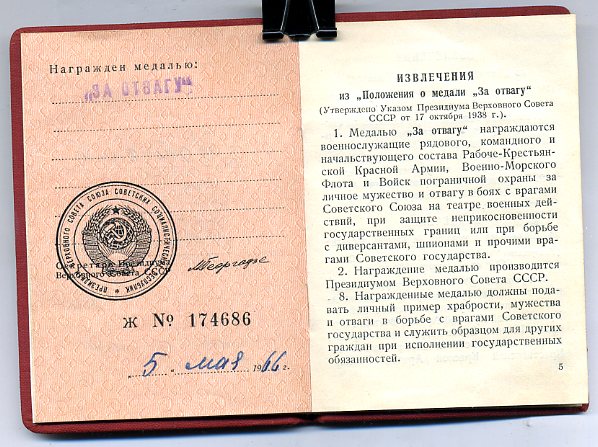 Награжден медалью:
„ЗА ОТВАГУ“
ПРЕЗИДИУМ ВЕРХОВНОГО СОВЕТА СОЮЗА СОВЕТСКИХ СОЦИАЛИСТИЧЕСКИХ РЕСПУБЛИК
Секретарь Президиума
Верховного Совета СССР
МГеоргадзе
Ж № 174686
5 мая 1966 г.
ИЗВЛЕЧЕНИЯ
из „Положения о медали „За отвагу“
(Утверждено Указом Президиума Верховного Совета
СССР от 17 октября 1938 г.).
1. Медалью „За отвагу“ награждаются
военнослужащие рядового, командного и
начальствующего состава Рабоче-Крестьян-
ской Красной Армии, Военно-Морского
Флота и Войск пограничной охраны за
личное мужество и отвагу в боях с врагами
Советского Союза на театре военных дей-
ствий, при защите неприкосновенности
государственных границ или при борьбе
с диверсантами, шпионами и прочими вра-
гами Советского государства.
2. Награждение медалью производится
Президиумом Верховного Совета СССР.
8. Награжденные медалью должны пода-
вать личный пример храбрости, мужества
и отваги в борьбе с врагами Советского
государства и служить образцом для других
граждан при исполнении государственных
обязанностей.
5